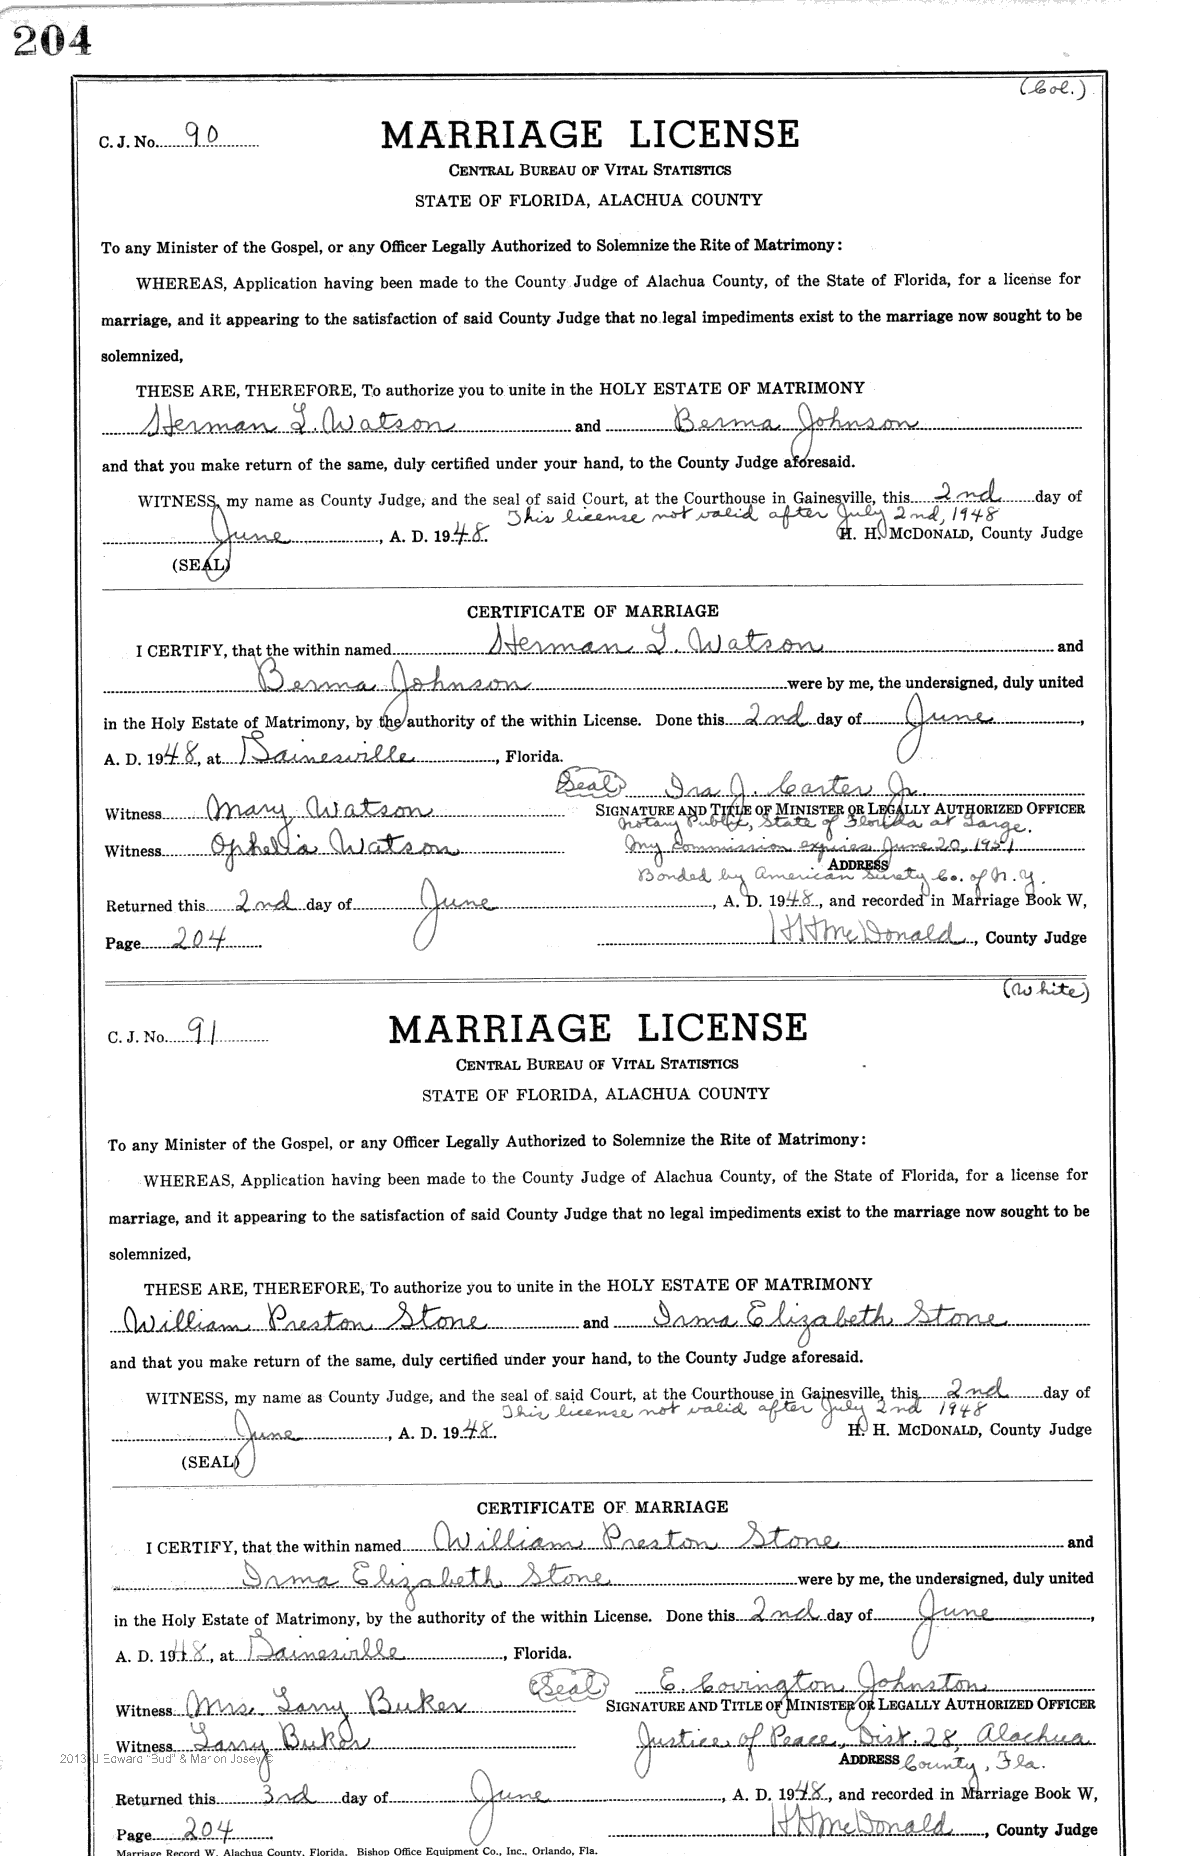 204
(Col.)
C. J. No. 90
MARRIAGE LICENSE
CENTRAL BUREAU OF VITAL STATISTICS
STATE OF FLORIDA, ALACHUA COUNTY
To any Minister of the Gospel, or any Officer Legally Authorized to Solemnize the Rite of Matrimony:
WHEREAS, Application having been made to the County Judge of Alachua County, of the State of Florida, for a license for
marriage, and it appearing to the satisfaction of said County Judge that no legal impediments exist to the marriage now sought to be
solemnized,
THESE ARE, THEREFORE, To authorize you to unite in the HOLY ESTATE OF MATRIMONY
Herman L. Watson and Berma Johnson
and that you make return of the same, duly certified under your hand, to the County Judge aforesaid.
WITNESS, my name as County Judge, and the seal of said Court, at the Courthouse in Gainesville, this 2nd day of
This license not valid after July 2nd, 1948
June, A. D. 1948. H. H. McDONALD, County Judge
(SEAL)
CERTIFICATE OF MARRIAGE
I CERTIFY, that the within named Herman L. Watson and
Berma Johnson were by me, the undersigned, duly united
in the Holy Estate of Matrimony, by the authority of the within License. Done this 2nd day of June,
A. D. 1948, at Gainesville, Florida.
Seal Ira J. Carter Jr.
Witness Mary Watson SIGNATURE AND TITLE OF MINISTER OR LEGALLY AUTHORIZED OFFICER
Notary Public, State of Florida at Large.
Witness Ophelia Watson My commission expires June 20, 1951
ADDRESS
Bonded by American Surety Co. of N. Y.
Returned this 2nd day of June, A. D. 1948, and recorded in Marriage Book W,
Page 204 H H McDonald, County Judge
(White)
C. J. No. 91
MARRIAGE LICENSE
CENTRAL BUREAU OF VITAL STATISTICS
STATE OF FLORIDA, ALACHUA COUNTY
To any Minister of the Gospel, or any Officer Legally Authorized to Solemnize the Rite of Matrimony:
WHEREAS, Application having been made to the County Judge of Alachua County, of the State of Florida, for a license for
marriage, and it appearing to the satisfaction of said County Judge that no legal impediments exist to the marriage now sought to be
solemnized,
THESE ARE, THEREFORE, To authorize you to unite in the HOLY ESTATE OF MATRIMONY
William Preston Stone and Irma Elizabeth Stone
and that you make return of the same, duly certified under your hand, to the County Judge aforesaid.
WITNESS, my name as County Judge, and the seal of said Court, at the Courthouse in Gainesville, this 2nd day of
This license not valid after July 2nd 1948
June, A. D. 1948. H. H. McDONALD, County Judge
(SEAL)
CERTIFICATE OF MARRIAGE
I CERTIFY, that the within named William Preston Stone and
Irma Elizabeth Stone were by me, the undersigned, duly united
in the Holy Estate of Matrimony, by the authority of the within License. Done this 2nd day of June,
A. D. 1948, at Gainesville, Florida.
Seal E. Covington Johnston
Witness Mrs. Larry Buker SIGNATURE AND TITLE OF MINISTER OR LEGALLY AUTHORIZED OFFICER
Witness Larry Buker Justice of Peace, Dist. 28, Alachua
2013 J Edward "Bud" & Marion Josey © ADDRESS County, Fla.
Returned this 3rd day of June, A. D. 1948, and recorded in Marriage Book W,
Page 204 H H McDonald, County Judge
Marriage Record W, Alachua County, Florida. Bishop Office Equipment Co., Inc., Orlando, Fla.